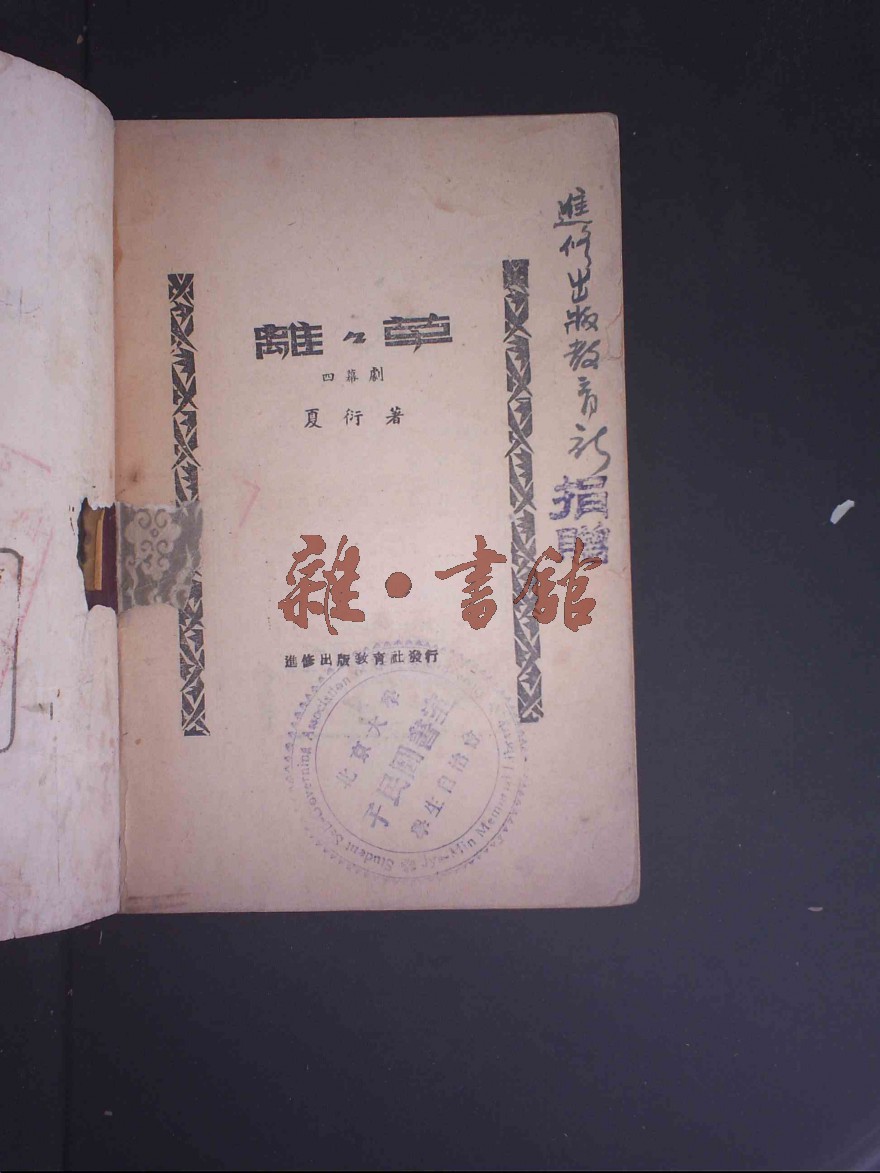 離々草
四幕劇
夏衍著
進修出版教育社發行
進修出版教育社
捐贈
雜·書館
北京大學
子民圖書室
學生自治會
Student Self-Governing Association
Min Memorial